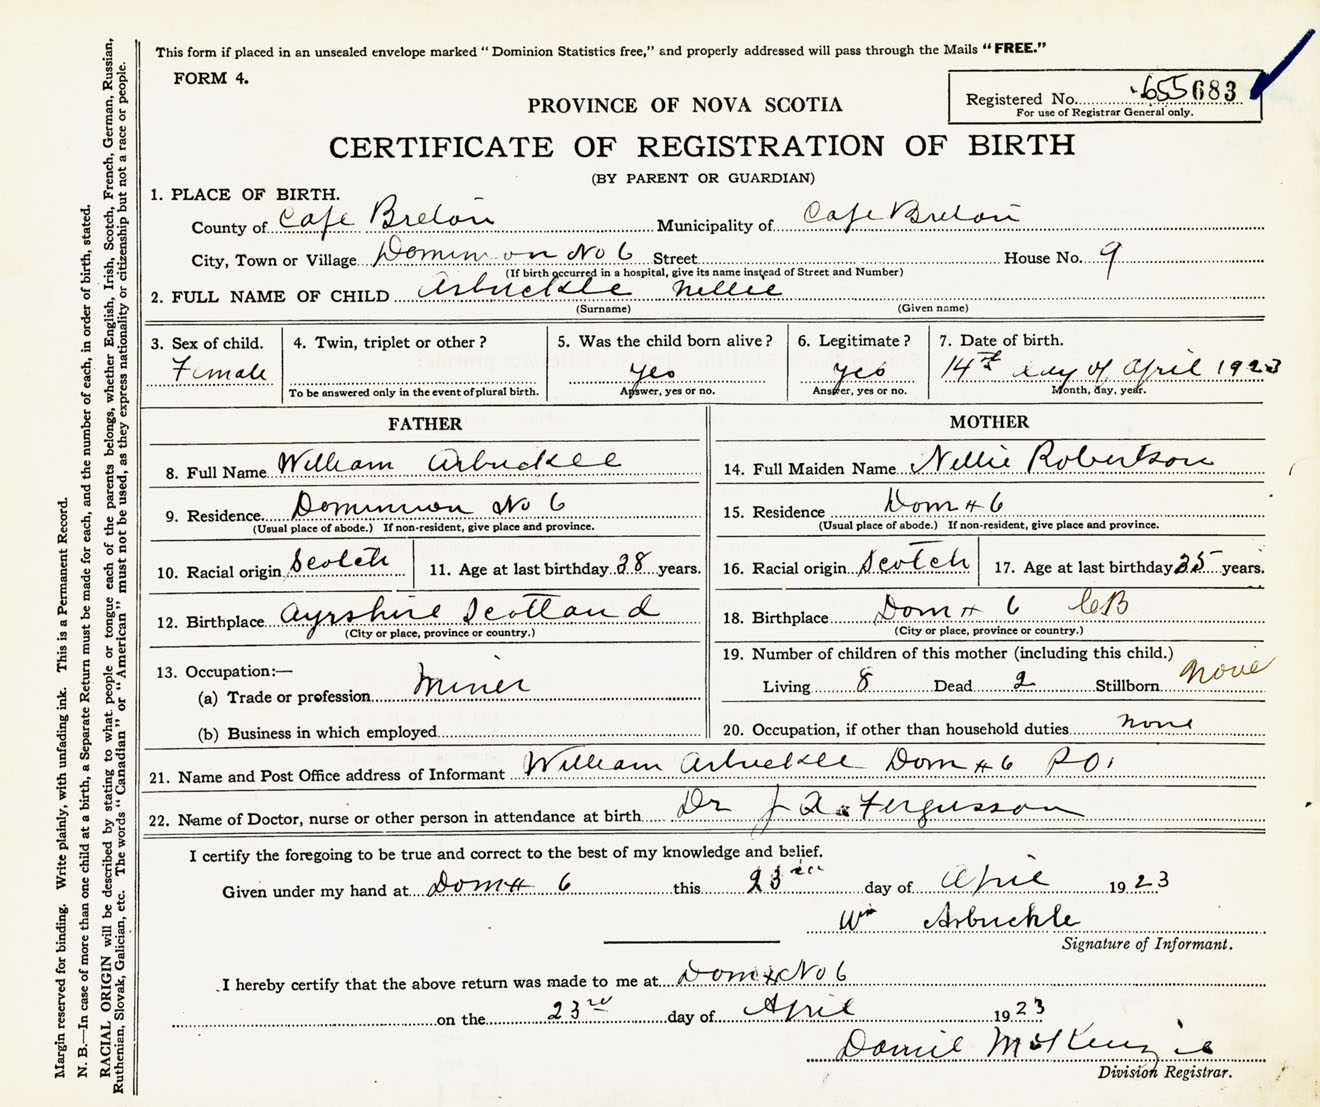 This form if placed in an unsealed envelope marked "Dominion Statistics free," and properly addressed will pass through the Mails "FREE."
FORM 4.
Registered No. 655683
For use of Registrar General only.
PROVINCE OF NOVA SCOTIA
CERTIFICATE OF REGISTRATION OF BIRTH
(BY PARENT OR GUARDIAN)
1. PLACE OF BIRTH.
County of Cape Breton Municipality of Cape Breton
City, Town or Village Dominion No 6 Street House No. 9
(If birth occurred in a hospital, give its name instead of Street and Number)
2. FULL NAME OF CHILD Arbuckle Nellie
(Surname) (Given name)
3. Sex of child. 4. Twin, triplet or other? 5. Was the child born alive? 6. Legitimate? 7. Date of birth.
Female yes yes 14th day of April 1923
To be answered only in the event of plural birth. Answer, yes or no. Answer, yes or no. Month, day, year.
FATHER MOTHER
8. Full Name William Arbuckle 14. Full Maiden Name Nellie Robertson
9. Residence Dominion No 6 15. Residence Dom # 6
(Usual place of abode.) If non-resident, give place and province. (Usual place of abode.) If non-resident, give place and province.
10. Racial origin Scotch 11. Age at last birthday 38 years. 16. Racial origin Scotch 17. Age at last birthday 35 years.
12. Birthplace Ayrshire Scotland 18. Birthplace Dom # 6 CB
(City or place, province or country.) (City or place, province or country.)
13. Occupation:— 19. Number of children of this mother (including this child.)
(a) Trade or profession Miner Living 8 Dead 2 Stillborn none
(b) Business in which employed 20. Occupation, if other than household duties none
21. Name and Post Office address of Informant William Arbuckle Dom # 6 P O.
22. Name of Doctor, nurse or other person in attendance at birth Dr J A Fergusson
I certify the foregoing to be true and correct to the best of my knowledge and belief.
Given under my hand at Dom # 6 this 23rd day of April 1923
Wm Arbuckle
Signature of Informant.
I hereby certify that the above return was made to me at Dom No 6
on the 23rd day of April 1923
Daniel McKenzie
Division Registrar.
Margin reserved for binding. Write plainly, with unfading ink. This is a Permanent Record.
N. B.—In case of more than one child at a birth, a Separate Return must be made for each, and the number of each, in order of birth, stated.
RACIAL ORIGIN will be described by stating to what people or tongue each of the parents belongs, whether English, Irish, Scotch, French, German, Russian,
Ruthenian, Slovak, Galician, etc. The words "Canadian" or "American" must not be used, as they express nationality or citizenship but not a race or people.